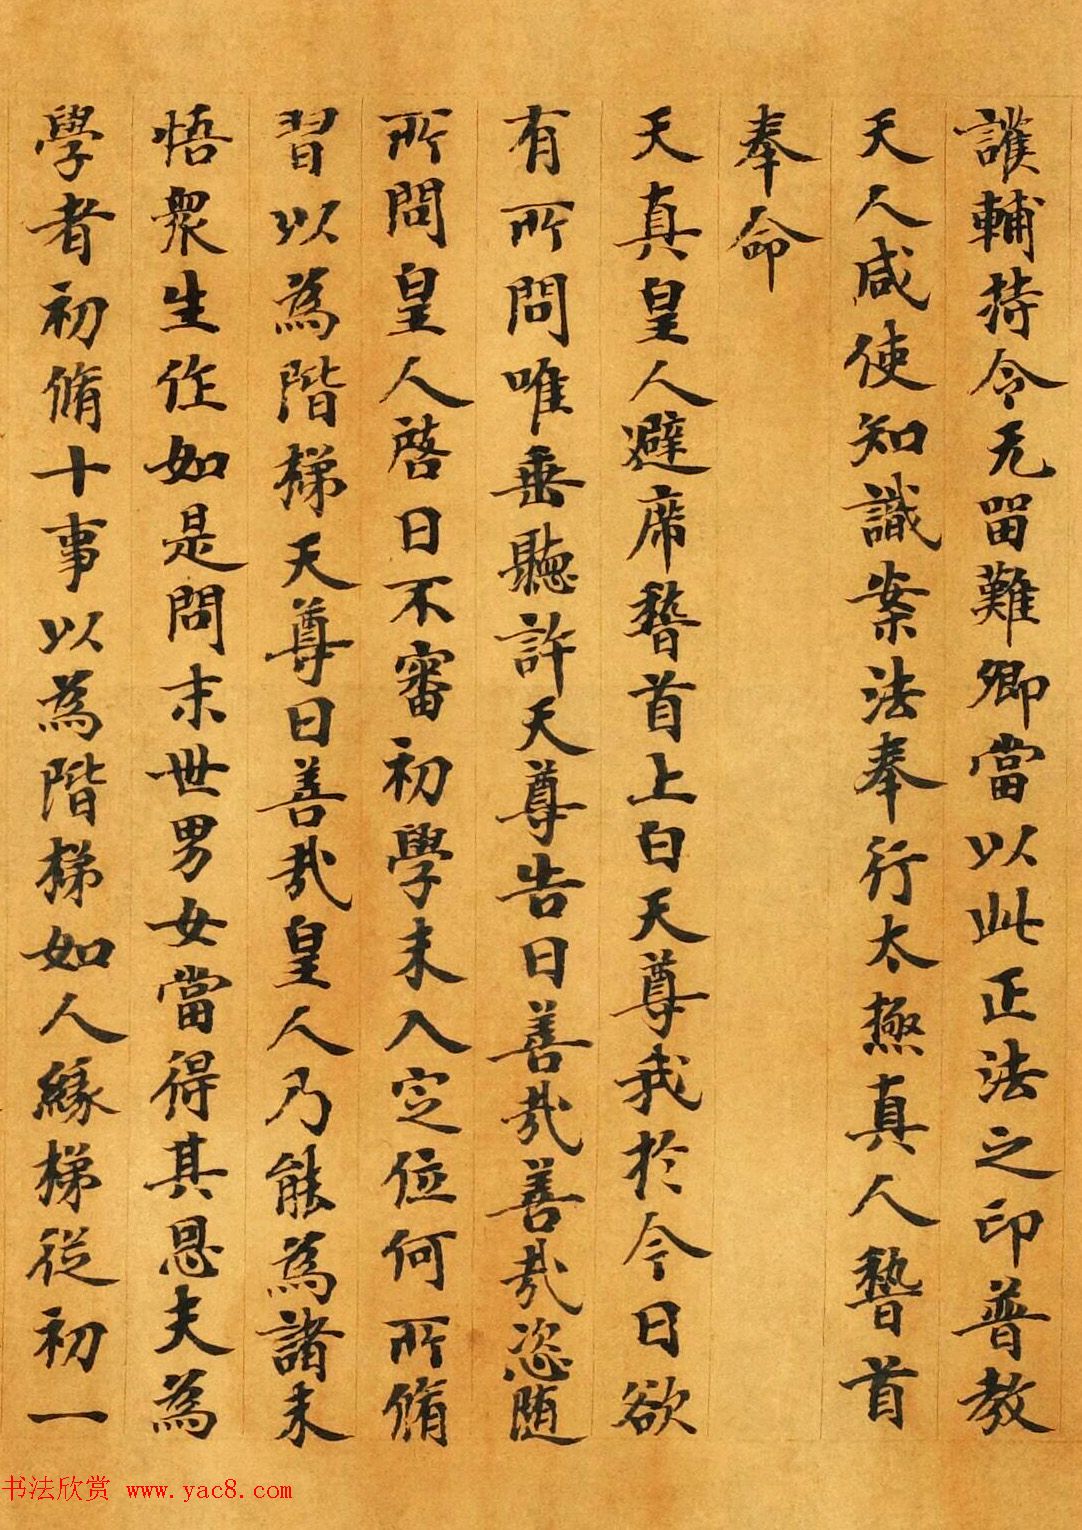 護輔持令无留難卿當以此正法之印普教
天人咸使知識案法奉行太極真人稽首
奉命
天真皇人避席稽首上白天尊我於今日欲
有所問唯垂聽許天尊告曰善哉善哉恣随
所問皇人啓曰不審初學未入定位何所脩
習以為階梯天尊曰善哉皇人乃能為諸未
悟眾生作如是問末世男女當得其恩夫為
學者初脩十事以為階梯如人緣梯從初一
书法欣赏 www.yac8.com